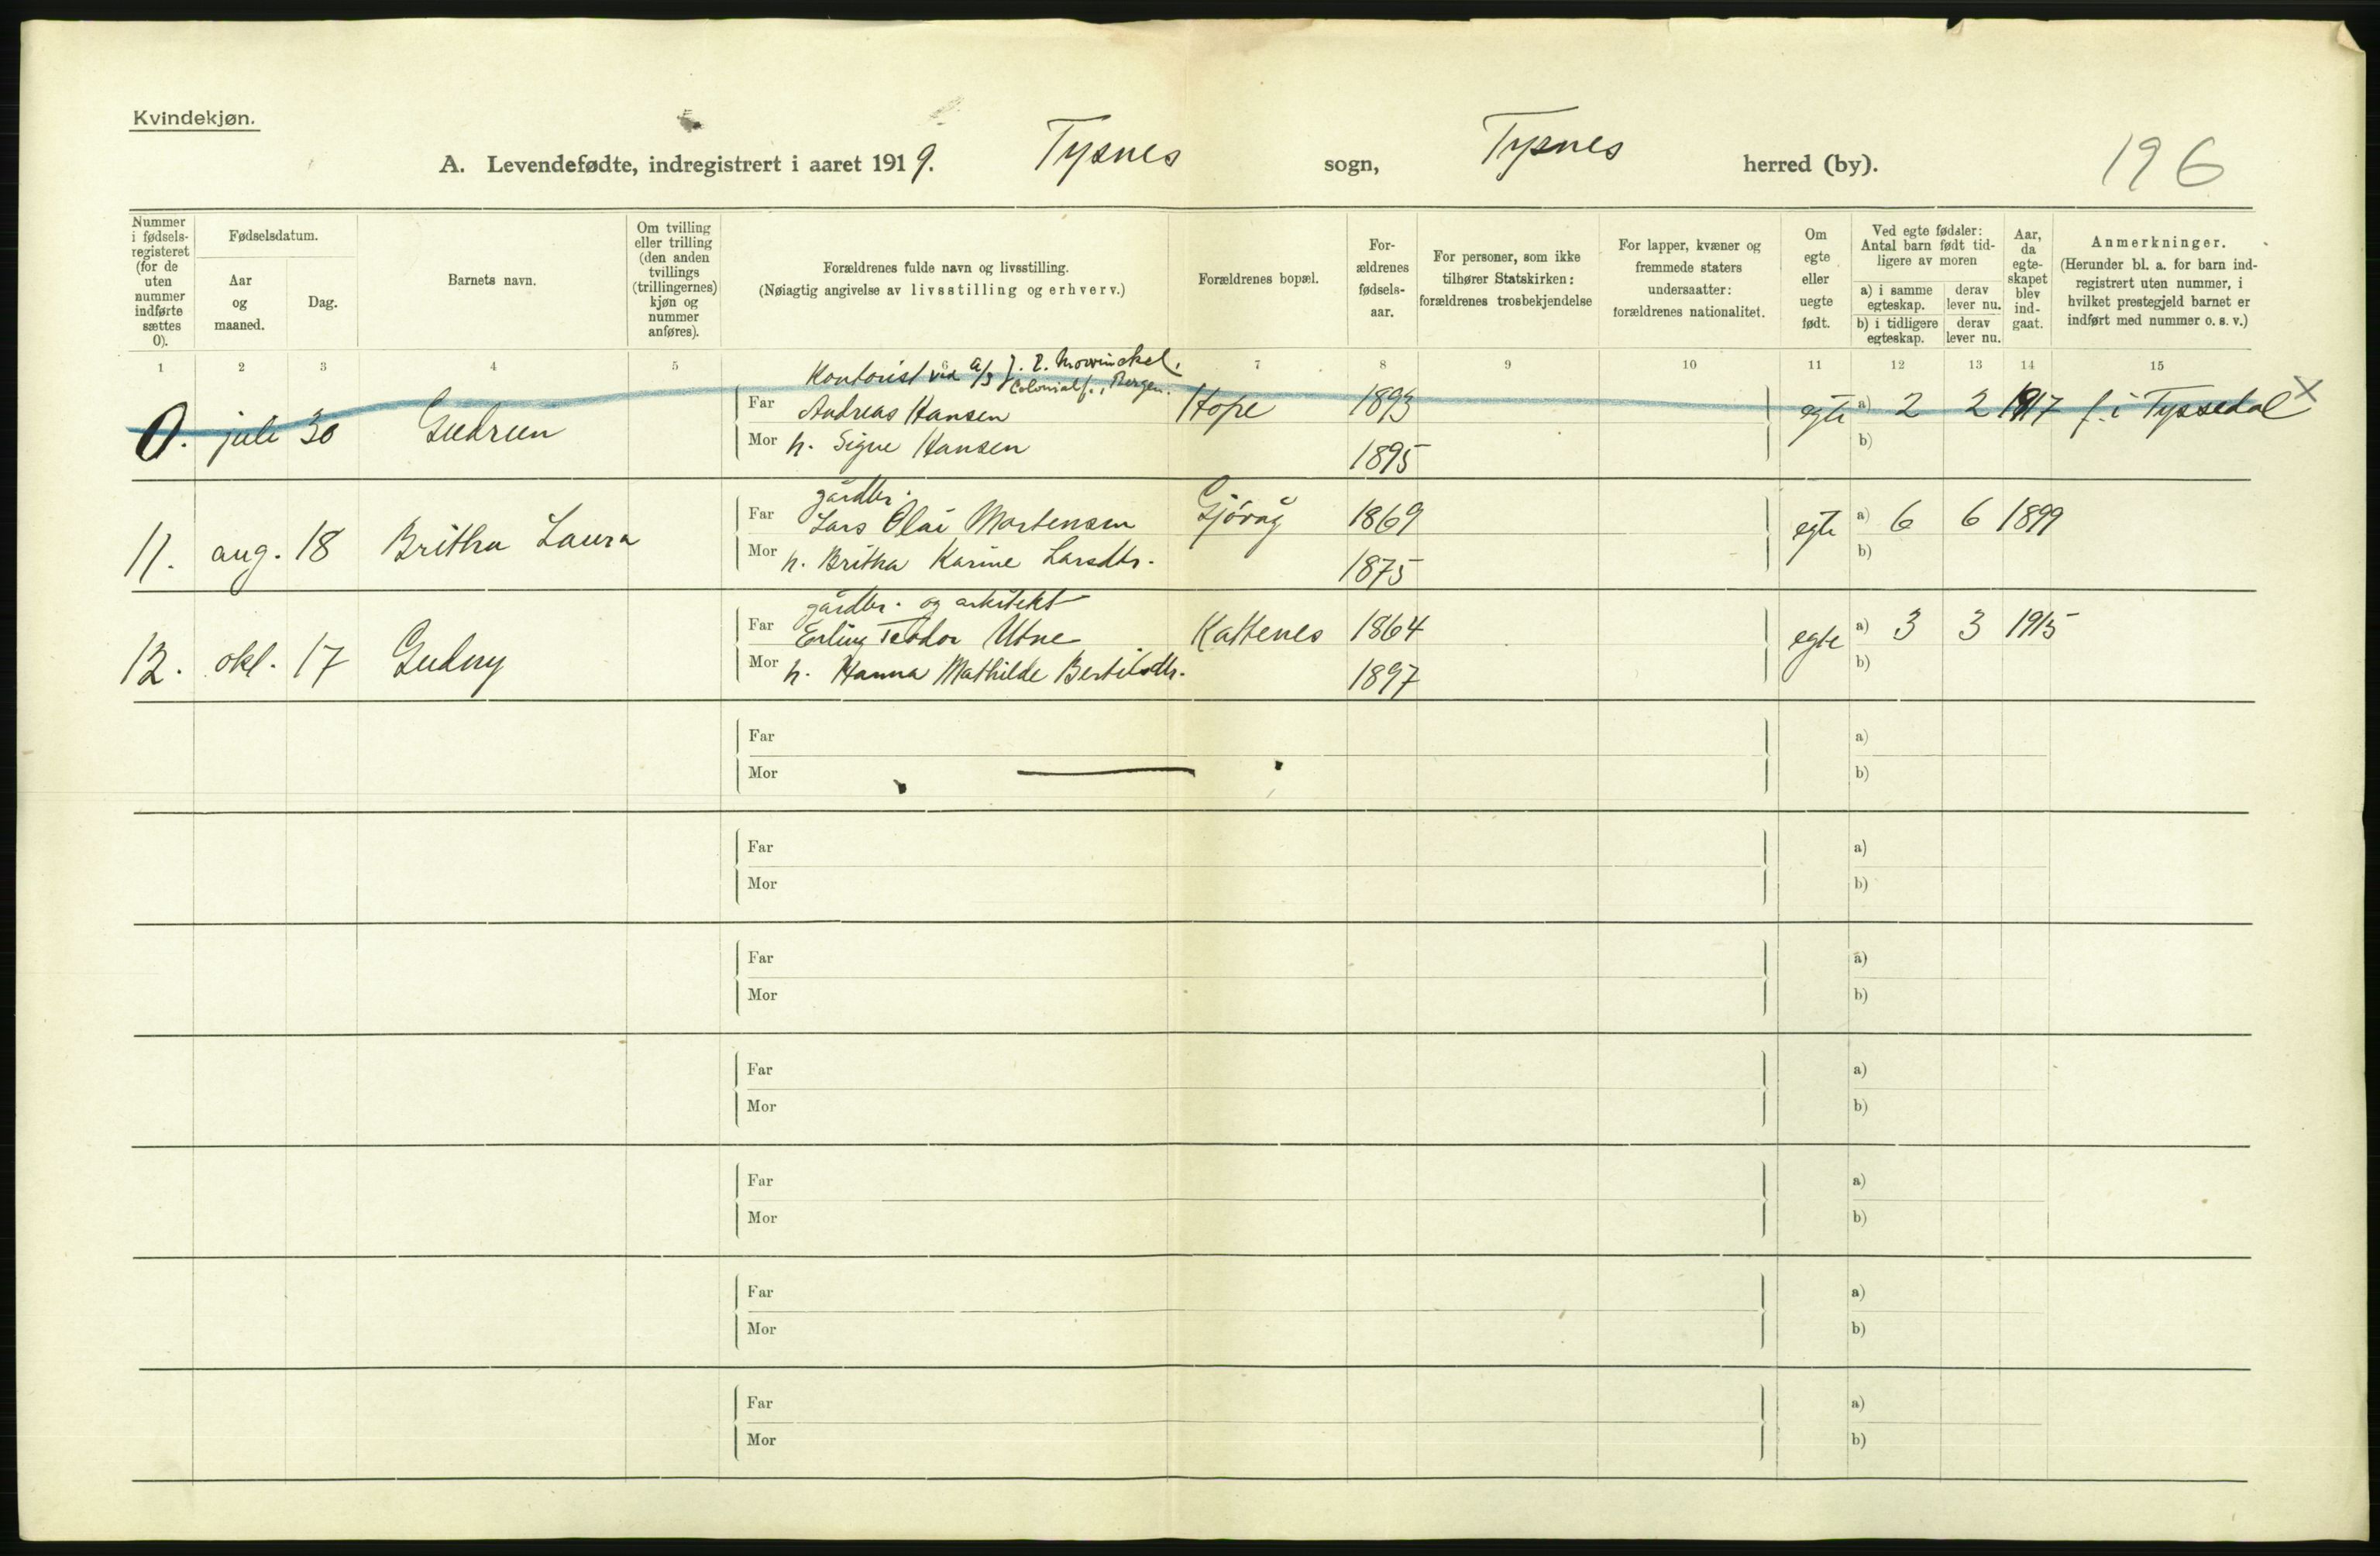 Kvindekjøn.
A. Levendefødte, indregistrert i aaret 1919. Tysnes sogn, Tysnes herred (by). 196
Nummer i fødsels-registeret (for de uten nummer indførte sættes 0).
Fødselsdatum.
Aar og maaned.
Dag.
Barnets navn.
Om tvilling eller trilling (den anden tvillings (trillingernes) kjøn og nummer anføres).
Forældrenes fulde navn og livsstilling.
(Nøiagtig angivelse av livsstilling og erhverv.)
Forældrenes bopæl.
For-ældrenes fødsels-aar.
For personer, som ikke tilhører Statskirken: forældrenes trosbekjendelse
For lapper, kvæner og fremmede staters undersaatter: forældrenes nationalitet.
Om egte eller uegte født.
Ved egte fødsler: Antal barn født tid-ligere av moren
a) i samme egteskap. derav lever nu.
b) i tidligere egteskap. derav lever nu.
Aar, da egte-skapet blev ind-gaat.
Anmerkninger.
(Herunder bl. a. for barn ind-registrert uten nummer, i hvilket prestegjeld barnet er indført med nummer o. s. v.)
1 2 3 4 5 6 7 8 9 10 11 12 13 14 15
Kontorist ved A/S J. E. Mowinckel
Colonialf., Bergen.
0. juli 30 Gudrun Far Andreas Hansen Hope 1893 egte a) 2 2 1917 f. i Tyssedal X
Mor h. Signe Hansen 1895 b)
gårdbr.
11. aug. 18 Britha Laura Far Lars Olai Mortensen Gjøvåg 1869 egte a) 6 6 1899
Mor h. Britha Karine Larsdtr. 1875 b)
gårdbr. og arkitekt
12. okt. 17 Gudny Far Erling Teodor Utne Kattenes 1864 egte a) 3 3 1915
Mor h. Hanna Mathilde Bertilsdtr. 1897 b)
Far a)
Mor b)
Far a)
Mor b)
Far a)
Mor b)
Far a)
Mor b)
Far a)
Mor b)
Far a)
Mor b)
Far a)
Mor b)